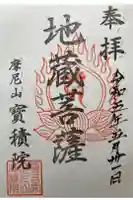 奉拝
令和六年五月廿一日
地蔵菩薩
摩尼山
寳積院